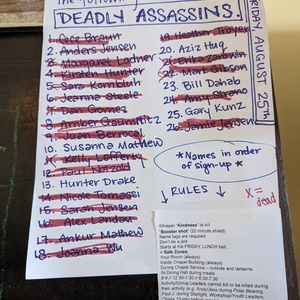 The following
DEADLY ASSASSINS.
FRIDAY, AUGUST 25TH
1. Cece Braun
2. Anders Jensen
3. Margaret Ladner
4. Kirsten Hunter
5. Sara Kornbluh
6. Jeanna Steele
7. Dan Gomez
8. Amber Gaumnitz
9. Juan Berrocal
10. Susanna Matthew
11. Kelly Lafferty
12. Paul
13. Hunter Drake
14. Nicole Tomassi
15. Sarah Jensen
16. Alex Landau
17. Ankur Mathew
18. Joanna Wu
19. Heather Trayer
20. Aziz Huq
21. Erika Zarowin
22. Mark Gibson
23. Bill Dahab
24. Amy Strano
25. Gary Kunz
26. Jamie Jensen
*Names in order
of sign-up *
↓RULES ↓
X =
dead
Whisper "Kindness" to kill
"Booster shot" (20 minute shield)
Name tags are required
Don't be a jerk
Starts at the FRIDAY LUNCH bell.
> Safe Zones:
Your Room (always)
Inside Chapel Building (always)
During Chapel Service - outside and lanterns
IN Dining Hall during meals
Activity/Group Leaders cannot kill or be killed during
their activity (e.g. Andy/Jess during Polar Bearing,
Paul J. during Starlight, Workshop/Youth Leaders